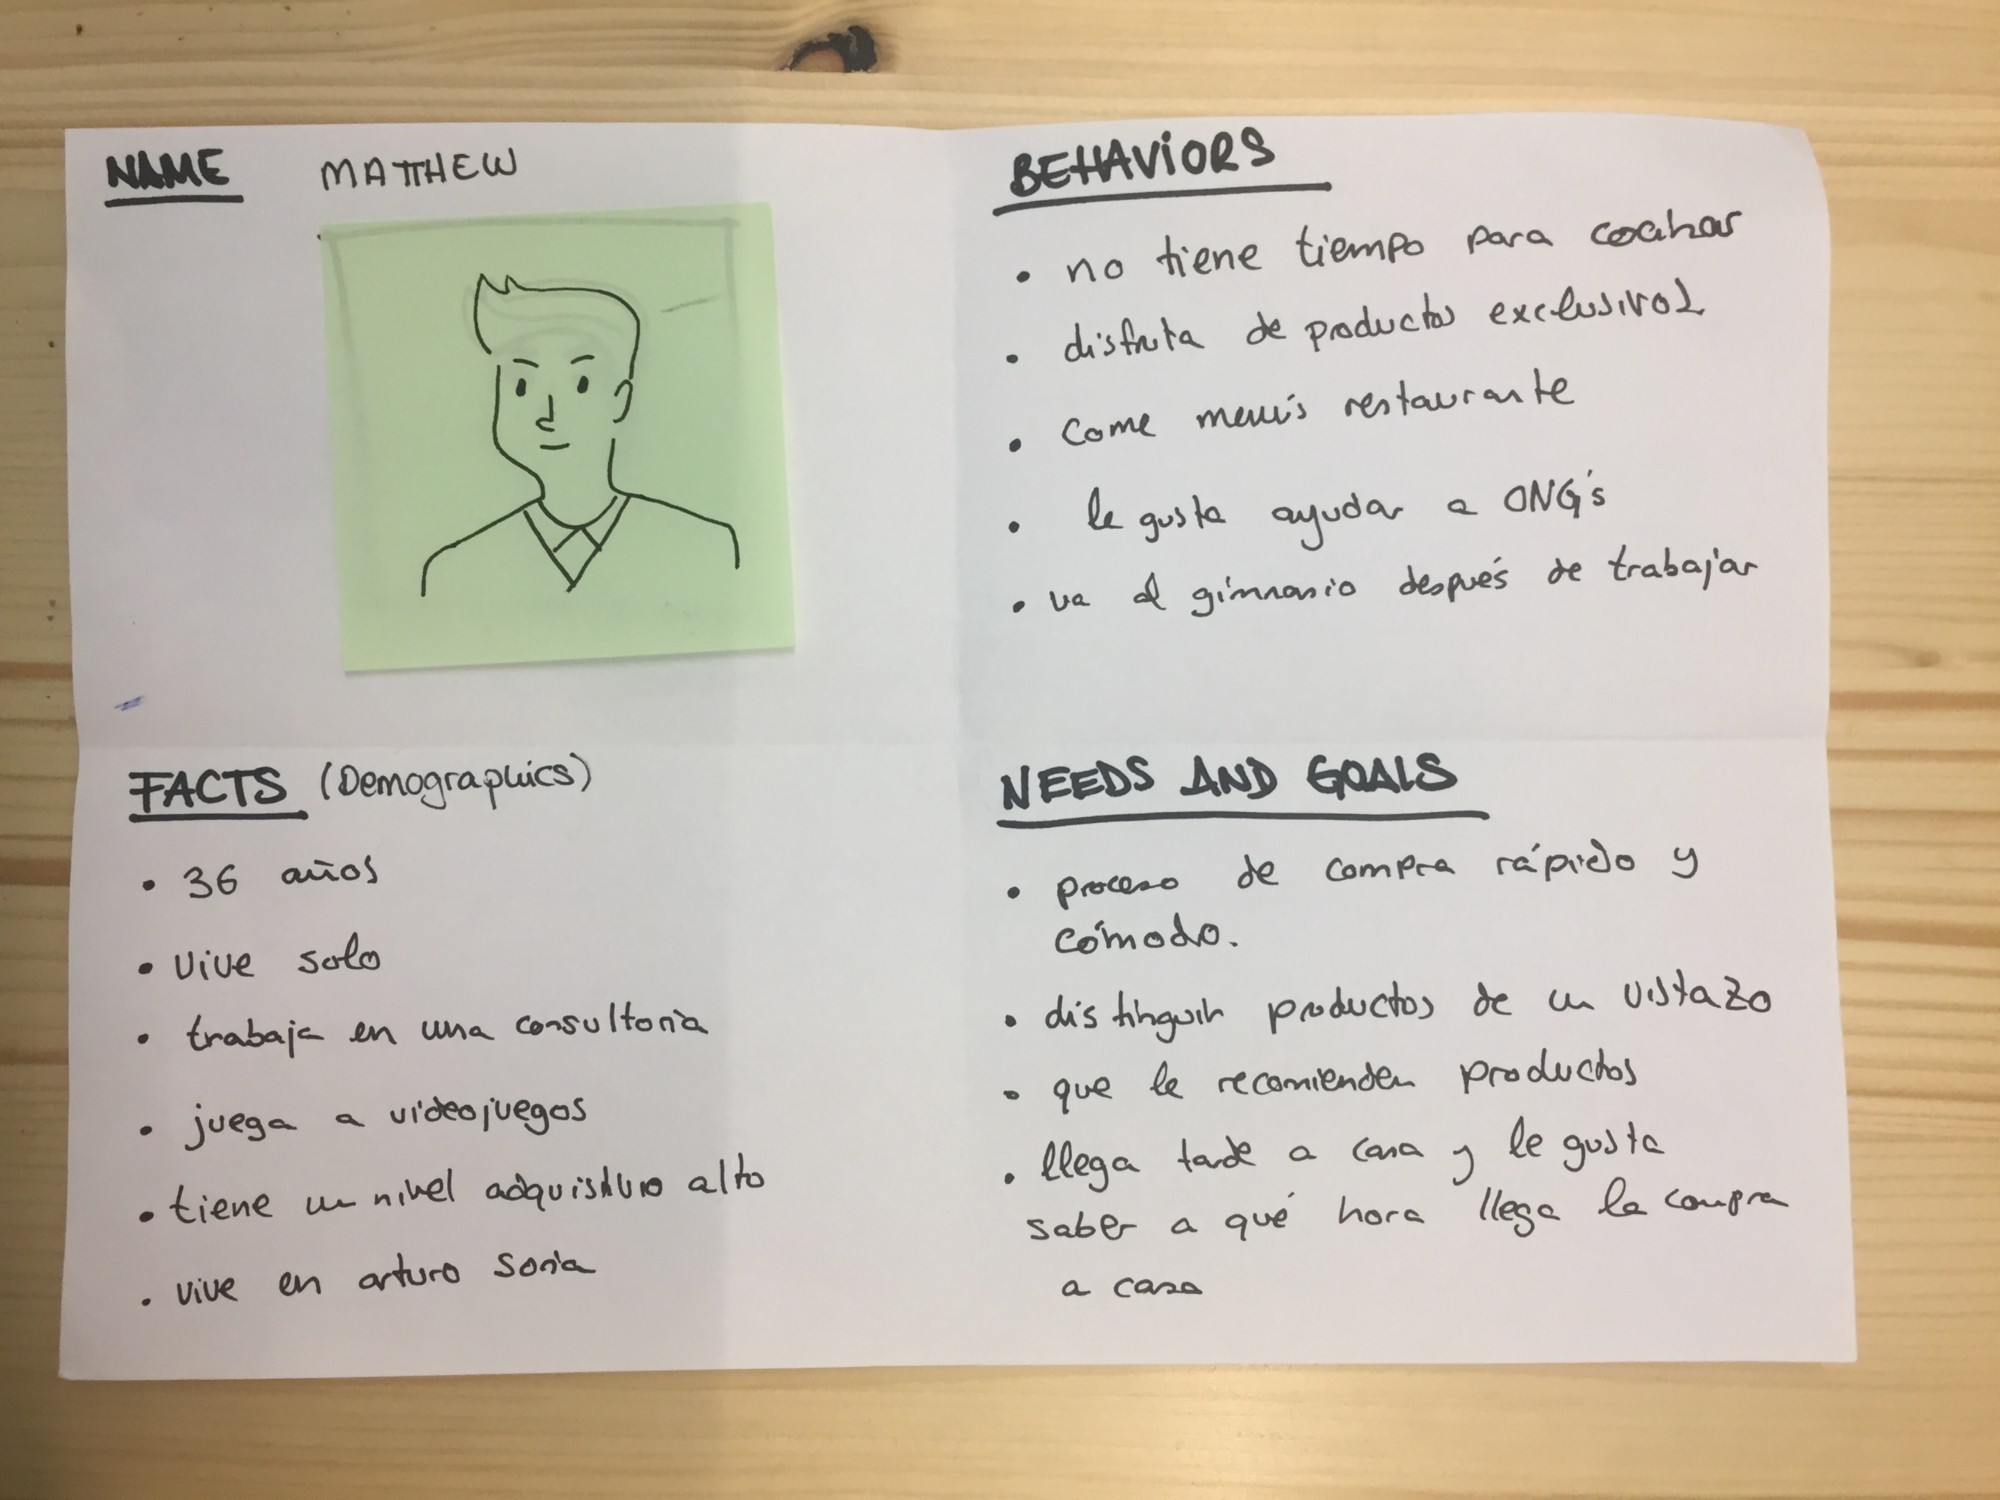 NAME MATTHEW
BEHAVIORS
• no tiene tiempo para cocinar
• disfruta de productos exclusivos
• Come menús restaurante
• le gusta ayudar a ONG's
• va al gimnasio después de trabajar
FACTS (Demographics)
• 36 años
• vive solo
• trabaja en una consultoría
• juega a videojuegos
• tiene un nivel adquisitivo alto
• vive en arturo soria
NEEDS AND GOALS
• proceso de compra rápido y
cómodo.
• distinguir productos de un vistazo
• que le recomienden productos
• llega tarde a casa y le gusta
saber a qué hora llega la compra
a casa